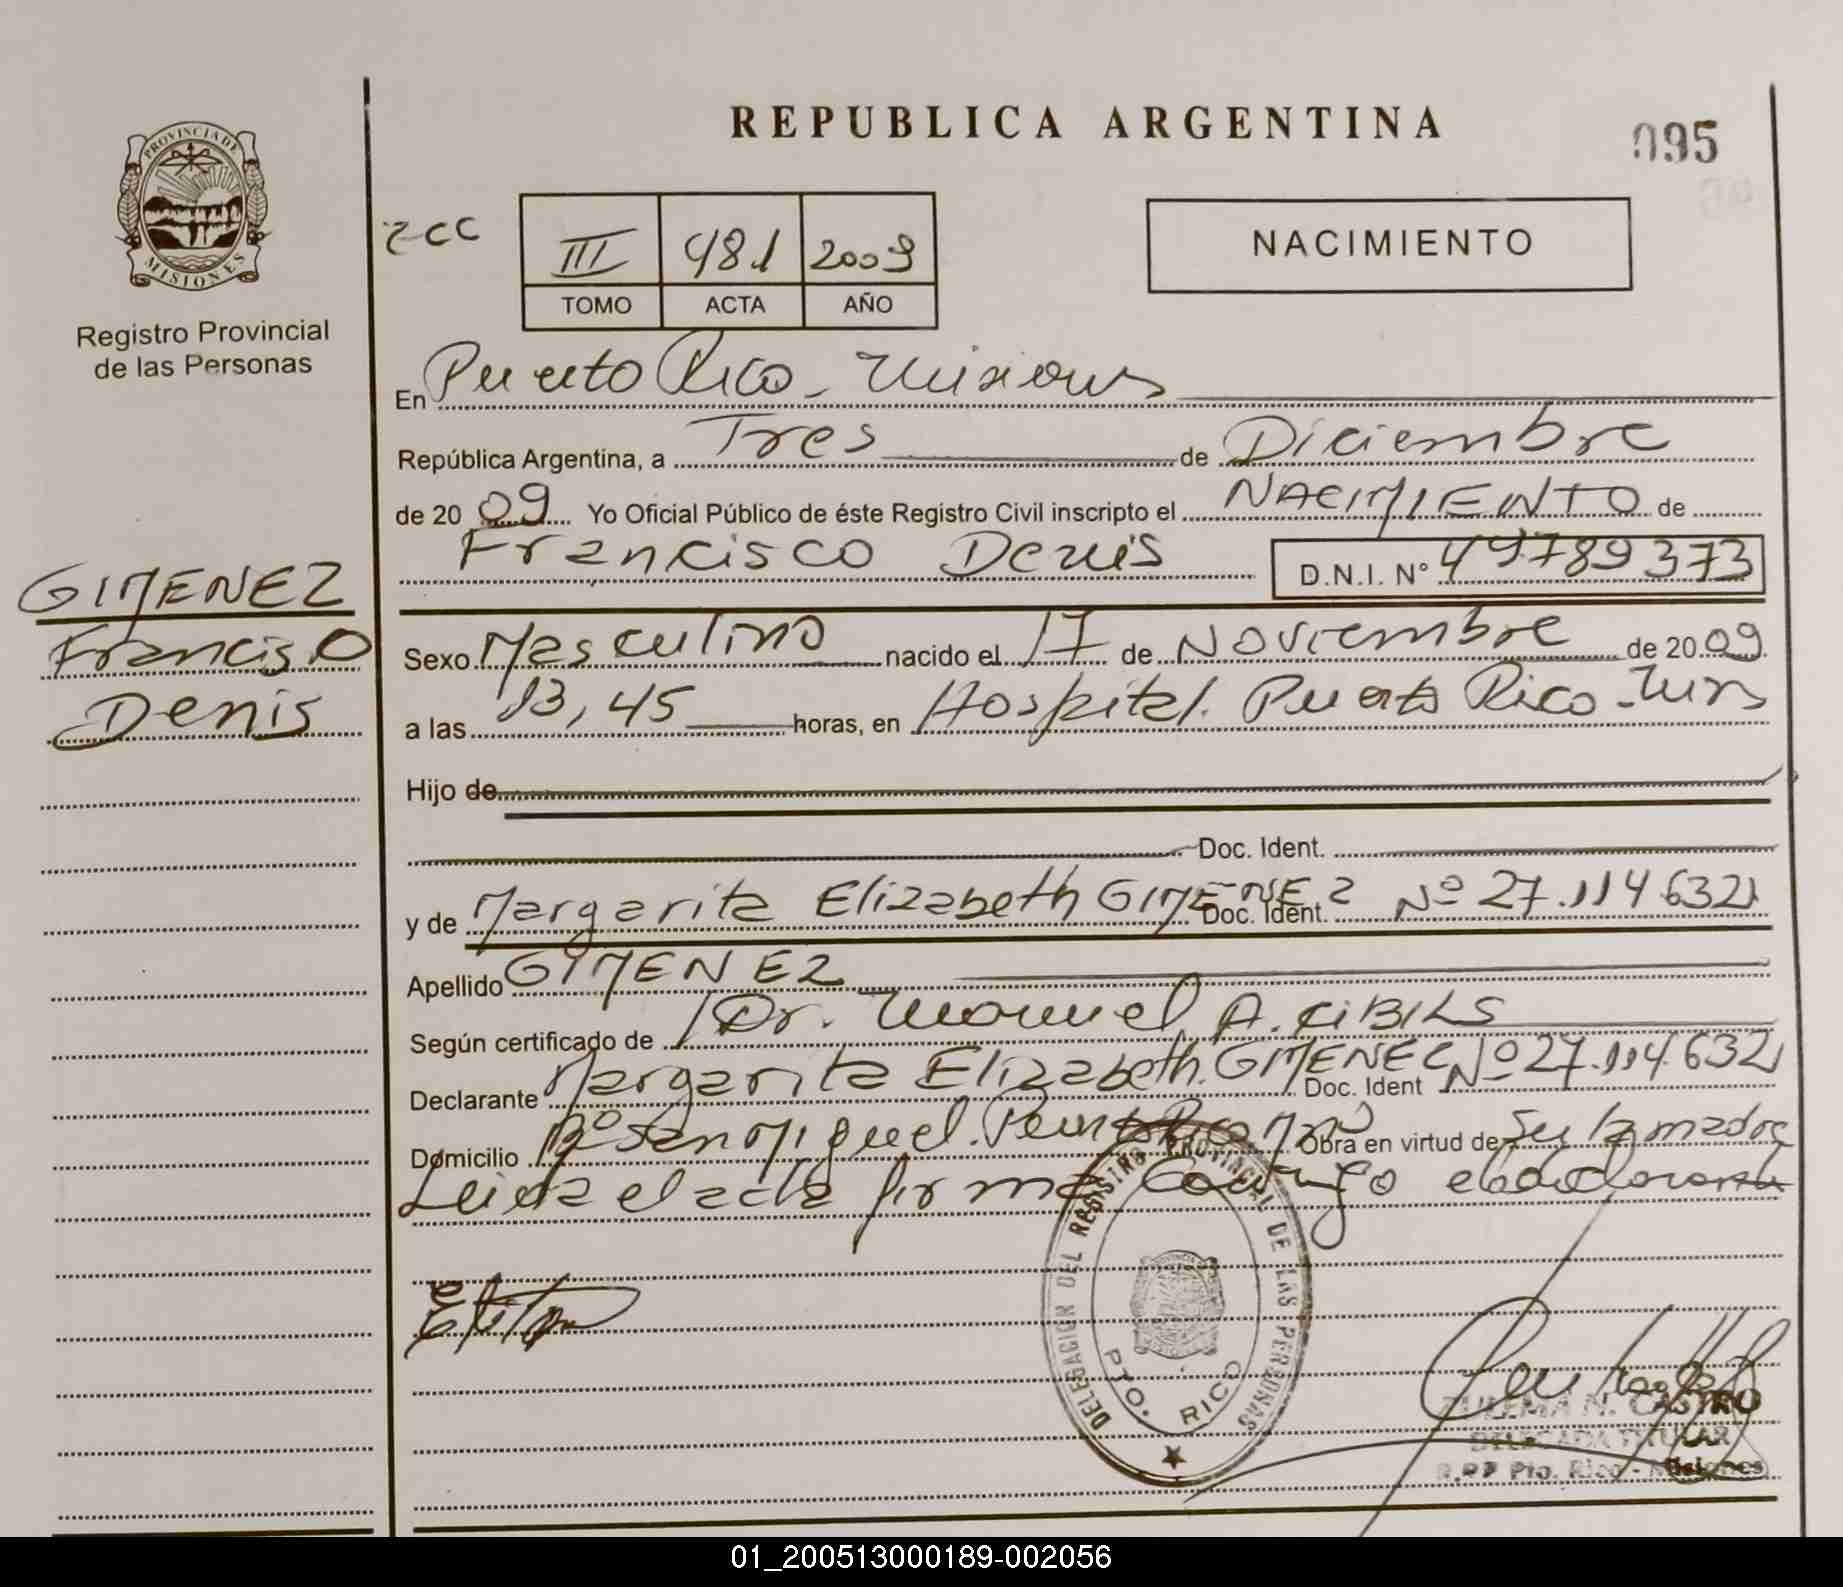 PROVINCIA DE
MISIONES
Registro Provincial
de las Personas
GIMENEZ
Francisco
Denis
REPUBLICA ARGENTINA
095
III 481 2009
TOMO ACTA AÑO
NACIMIENTO
En Puerto Rico - Misiones
República Argentina, a Tres de Diciembre
de 2009 Yo Oficial Público de éste Registro Civil inscripto el NACIMIENTO de
Francisco Denis D.N.I. Nº 49789373
Sexo Masculino nacido el 17 de Noviembre de 2009
a las 13,45 horas, en Hospital Puerto Rico - Mns
Hijo de
Doc. Ident.
y de Margarita Elizabeth GIMENEZ Doc. Ident. Nº 27.114.632
Apellido GIMENEZ
Según certificado de Dr. Manuel A. CIBILS
Declarante Margarita Elizabeth GIMENEZ Doc. Ident Nº 27.114.632
Domicilio Bº San Miguel. Puerto Rico Mns Obra en virtud de Ser la madre
Leida el acta firma conmigo el declarante
DELEGACION DEL REGISTRO PROVINCIAL DE LAS PERSONAS
PTO. RICO
ZULEMA N. CASTRO
DELEGADA TITULAR
R.P.P Pto. Rico - Misiones
01_200513000189-002056